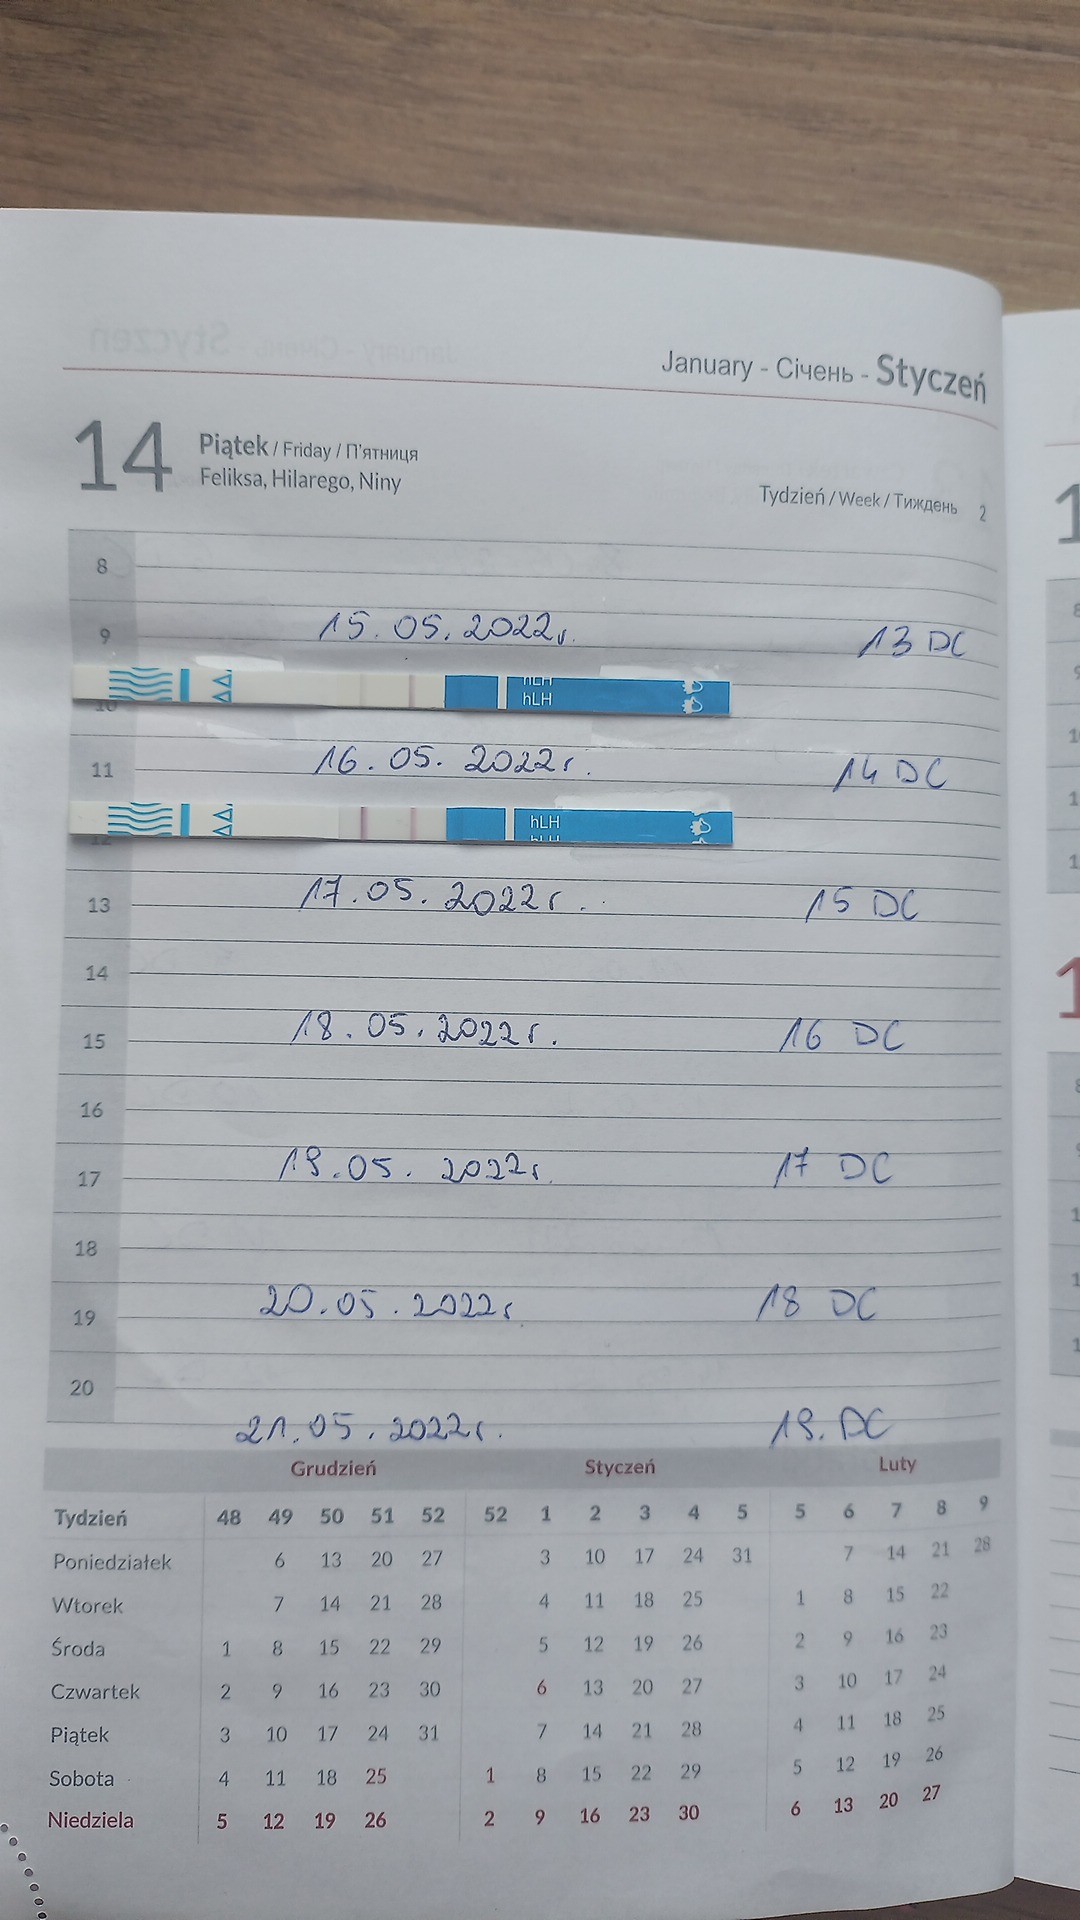 January - Січень - Styczeń
14 Piątek / Friday / П'ятниця
Feliksa, Hilarego, Niny
Tydzień / Week / Тиждень 2
8
9 15.05.2022r. 13 DC
10 hLH
hLH
11 16.05.2022r. 14 DC
12 hLH
hLH
13 17.05.2022r. 15 DC
14
15 18.05.2022r. 16 DC
16
17 19.05.2022r. 17 DC
18
19 20.05.2022r. 18 DC
20
21.05.2022r. 19. DC
Grudzień Styczeń Luty
Tydzień 48 49 50 51 52 52 1 2 3 4 5 5 6 7 8 9
Poniedziałek 6 13 20 27 3 10 17 24 31 7 14 21 28
Wtorek 7 14 21 28 4 11 18 25 1 8 15 22
Środa 1 8 15 22 29 5 12 19 26 2 9 16 23
Czwartek 2 9 16 23 30 6 13 20 27 3 10 17 24
Piątek 3 10 17 24 31 7 14 21 28 4 11 18 25
Sobota 4 11 18 25 1 8 15 22 29 5 12 19 26
Niedziela 5 12 19 26 2 9 16 23 30 6 13 20 27